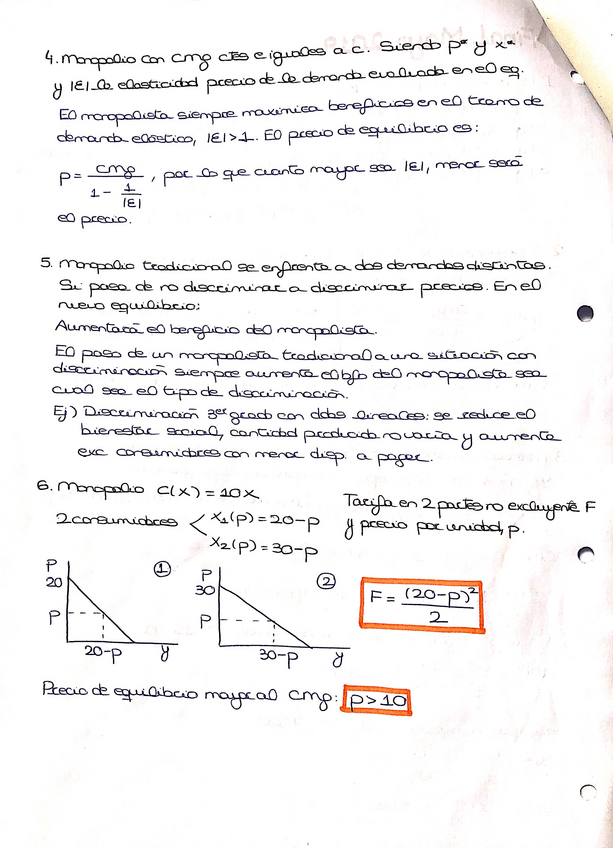 4. Monopolio con Cmg ctes e iguales a c. Siendo p* y x*
y |ε| la elasticidad precio de la demanda evaluada en el eq.
El monopolista siempre maximiza beneficios en el tramo de
demanda elástico, |ε|>1. El precio de equilibrio es:
p = cmg / (1 - 1/|ε|) , por lo que cuanto mayor sea |ε|, menor será
el precio.
5. Monopolio tradicional se enfrenta a dos demandas distintas.
Si pasa de no discriminar a discriminar precios. En el
nuevo equilibrio:
Aumentará el beneficio del monopolista.
El paso de un monopolista tradicional a una situación con
discriminación siempre aumenta el bfo del monopolista sea
cual sea el tipo de discriminación.
Ej) Discriminación 3er grado con ddas lineales: se reduce el
bienestar social, cantidad producida no varía y aumenta
exc consumidores con menor disp. a pagar.
6. Monopolio C(x) = 10x
2 consumidores < x₁(p) = 20-p
x₂(p) = 30-p
Tarifa en 2 partes no excluyente F
y precio por unidad, p.
P
20
P
20-p
y
①
P
30
P
30-p
y
②
F = (20-p)² / 2
Precio de equilibrio mayor al cmg: p>10